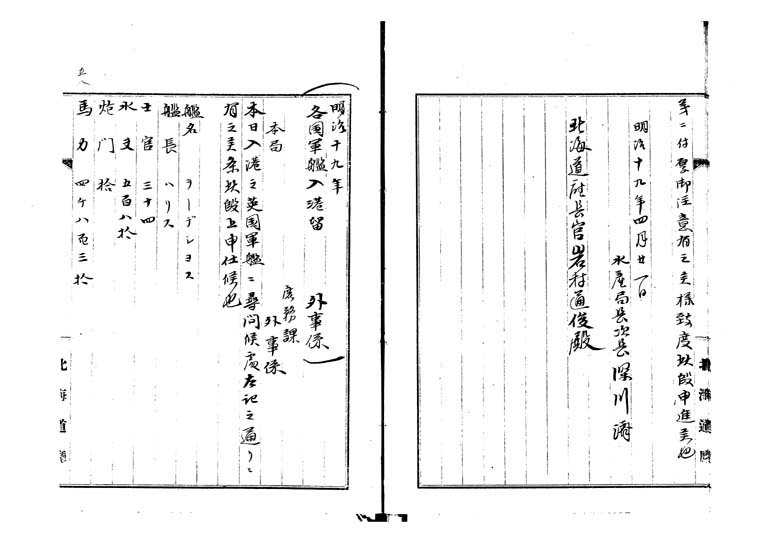 第二付翠御注意有之候様致度此段申進候也
明治十九年四月廿一日
水産局長次長深川濤
北海道庁長官岩村通俊殿
北海道庁
明治十九年
各国軍艦入港留
外事係
本局
庶務課
外事係
本日入港之英国軍艦ニ尋問候処左記之通リニ
有之候条此段上申仕候也
艦名 ラーデシヨス
艦長 ハリス
士官 三十四
水夫 五百八拾
炮門 拾
馬力 四千八百三拾
北海道庁